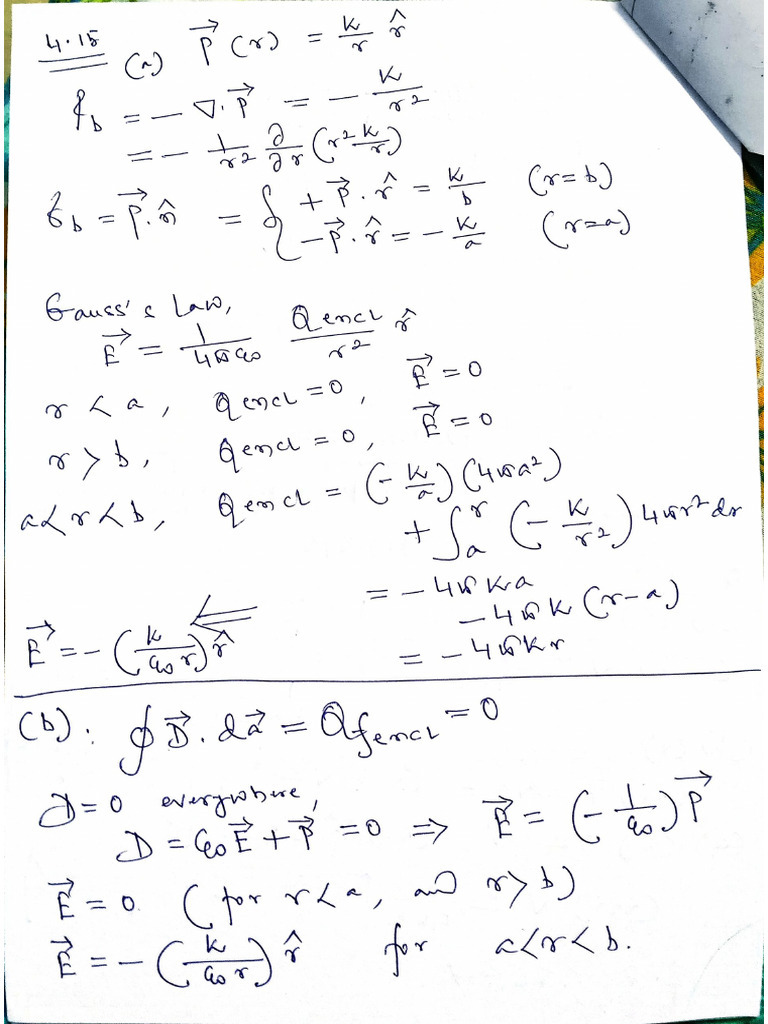 4.15 (a) P⃗(r) = k/r r̂
ρb = -∇·P⃗ = - k/r²
= - 1/r² ∂/∂r (r² k/r)
σb = P⃗·n̂ = { +P⃗·r̂ = k/b (r=b)
-P⃗·r̂ = - k/a (r=a)
Gauss's Law,
E⃗ = 1/4πε₀ Qencl/r² r̂
r < a, Qencl = 0, E⃗ = 0
r > b, Qencl = 0, E⃗ = 0
a<r<b, Qencl = (- k/a)(4πa²)
+ ∫ₐʳ (- k/r²) 4πr² dr
= - 4πka
- 4πk (r-a)
E⃗ = - (k/ε₀r) r̂ ⇐ = - 4πkr
(b): ∮ D⃗·da⃗ = Qfencl = 0
D=0 everywhere,
D = ε₀E⃗ + P⃗ = 0 ⇒ E⃗ = (- 1/ε₀) P⃗
E⃗ = 0 (for r<a, and r>b)
E⃗ = - (k/ε₀r) r̂ for a<r<b.